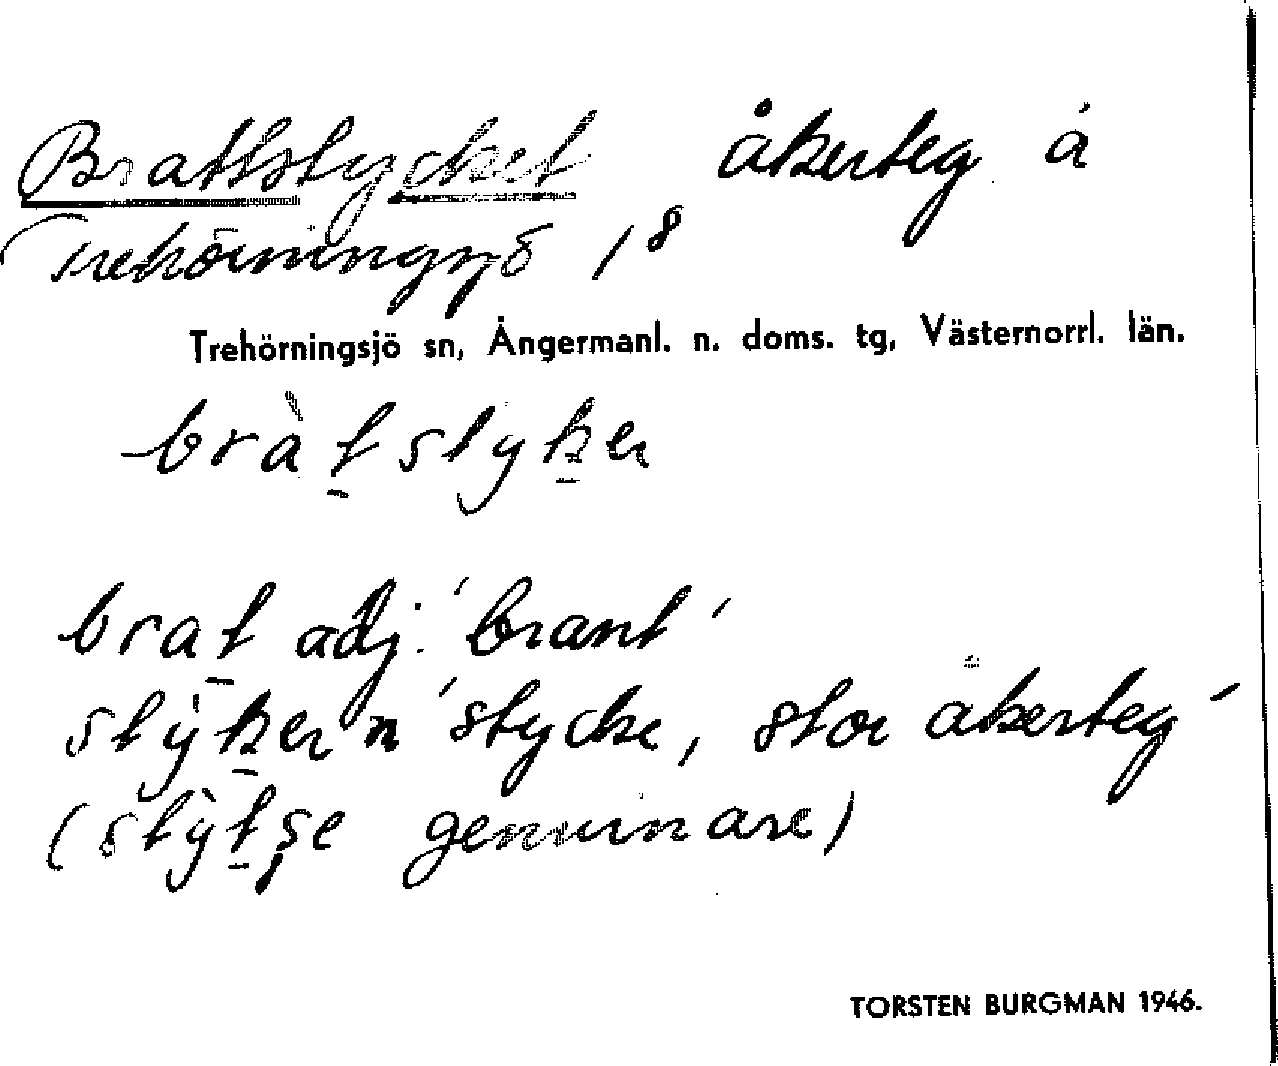 Brattstycket åkerteg å
Trehörningsjö 1⁸
Trehörningsjö sn, Ångermanl. n. doms. tg, Västernorrl. län.
bràt̲styk̲er
brat̲ adj. 'brant'
stỳk̲er n 'stycke, stor åkerteg'
(stỳt̲şe genuinare)
TORSTEN BURGMAN 1946.